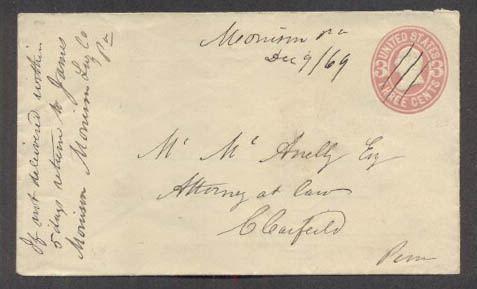 If not delivered within
5 days return to James
Morison Morison Luz Co
Pa
Morison Pa
Dec 9/69
UNITED STATES
THREE CENTS
3 3
Mr Mc Anelly Esq
Attorney at Law
Clearfield
Penn